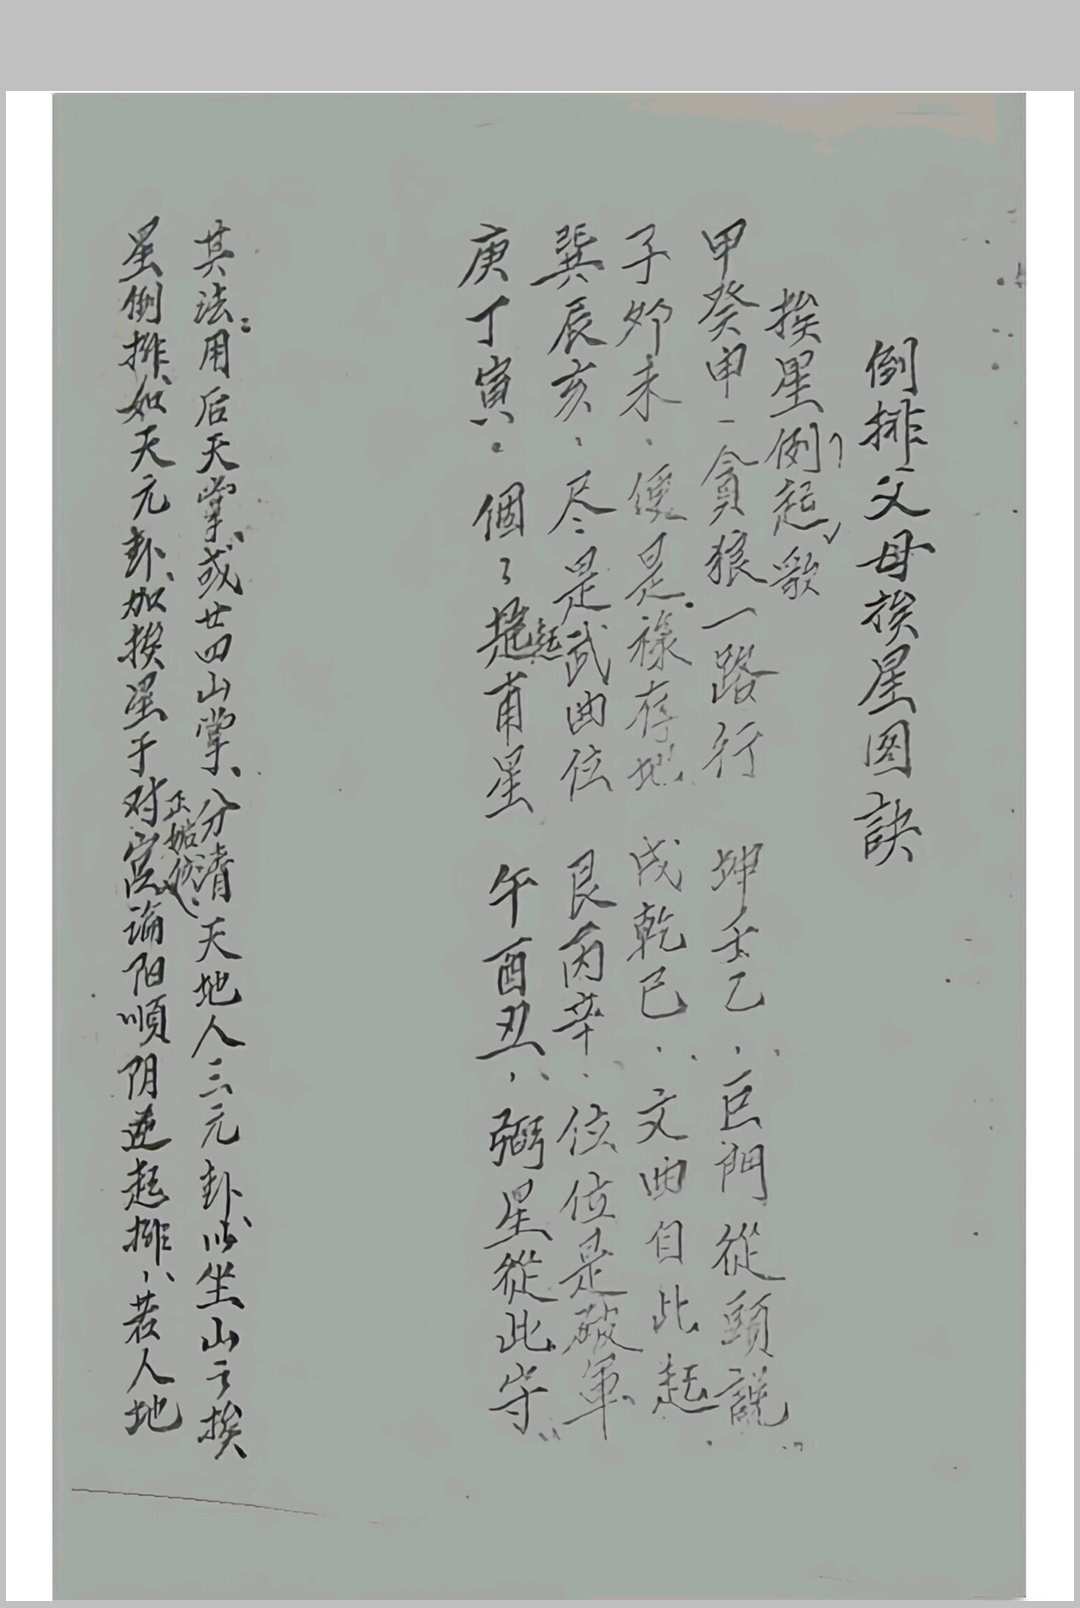 倒排父母挨星図訣
挨星例起歌
甲癸申一貪狼一路行 坤壬乙巨門從頭說
子卯未便是祿存地 戌乾巳文曲自此起
巽辰亥尽是武曲位 艮丙辛位位是破軍
庚丁寅個々是起甫星 午酉丑弼星從此守
其法用后天掌或廿四山掌分清天地人三元卦以坐山之挨
星倒排如天元卦加挨星于对宮論阳順阴逆起排若人地